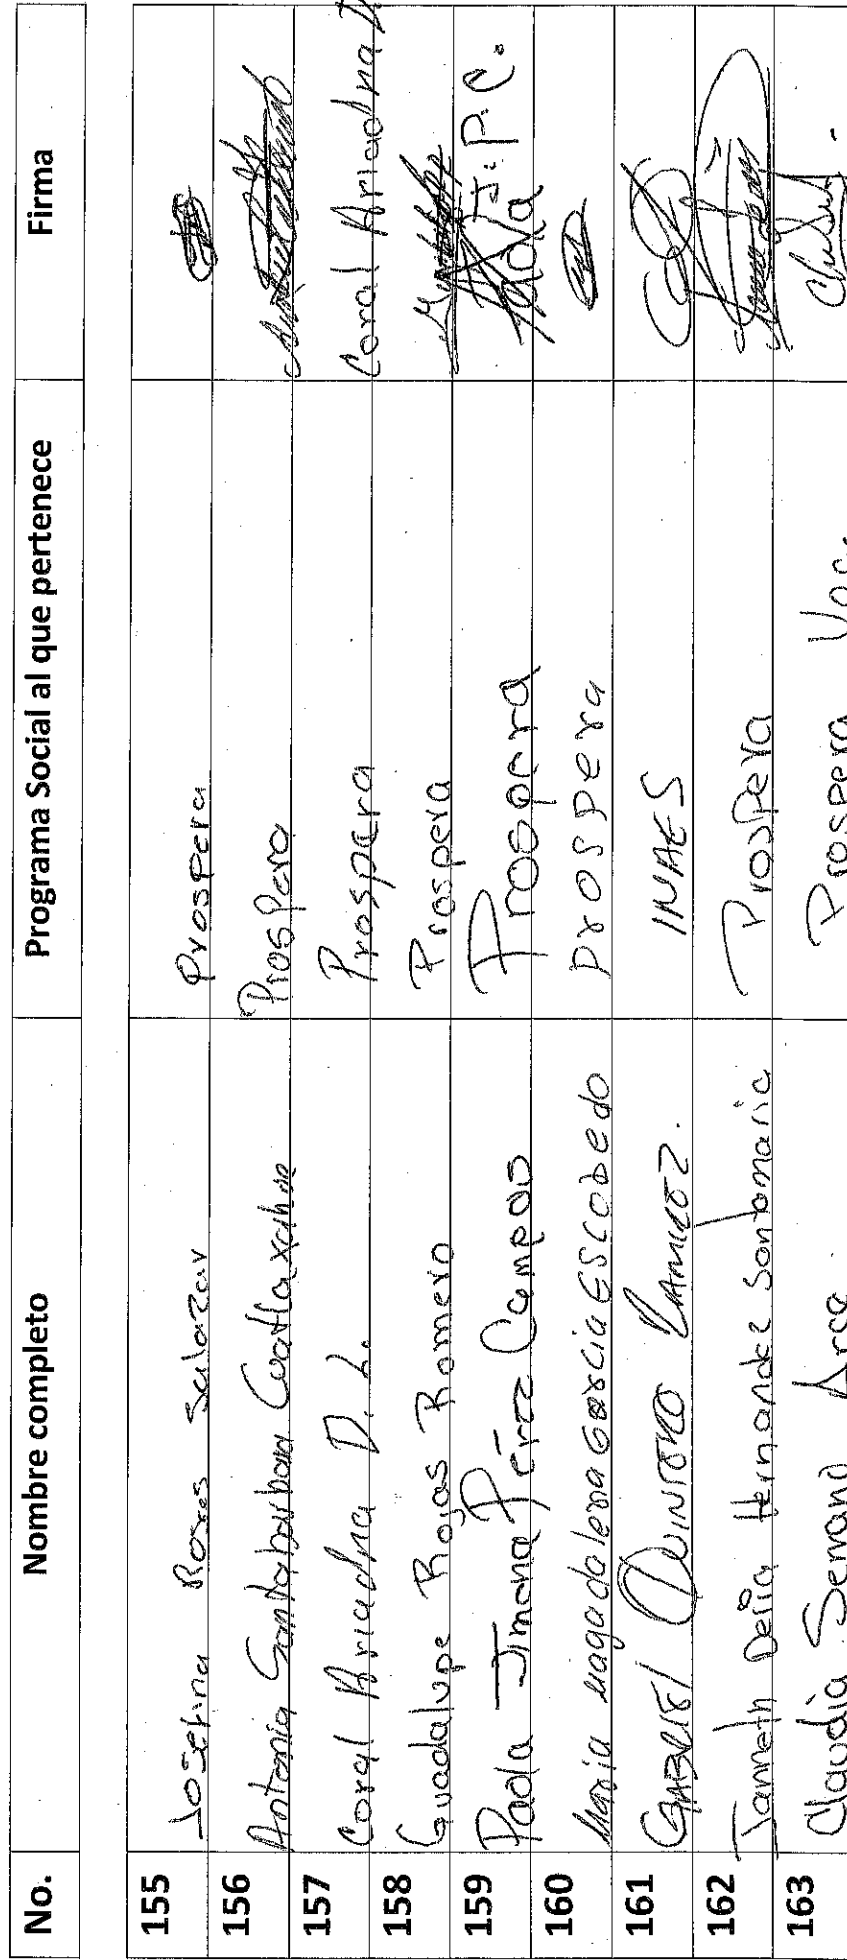 No. Nombre completo Programa Social al que pertenece Firma
155 Josefina Rosas Salazar Prospera
156 Antonia Santabarbara Coatlaxahue Prospera
157 Coral Ariadna D. L. Prospera Coral Ariadna D.
158 Guadalupe Rojas Romero Prospera
159 Paola Jimena Pérez Campos Prospera Paola J. P. C.
160 Maria Magadalena Garcia ESCObedo Prospera
161 GABRIEL QUINTERO RAMIREZ. INAES
162 Janneth Delia Hernandez Santamaria Prospera
163 Claudia Serrano Arce Prospera